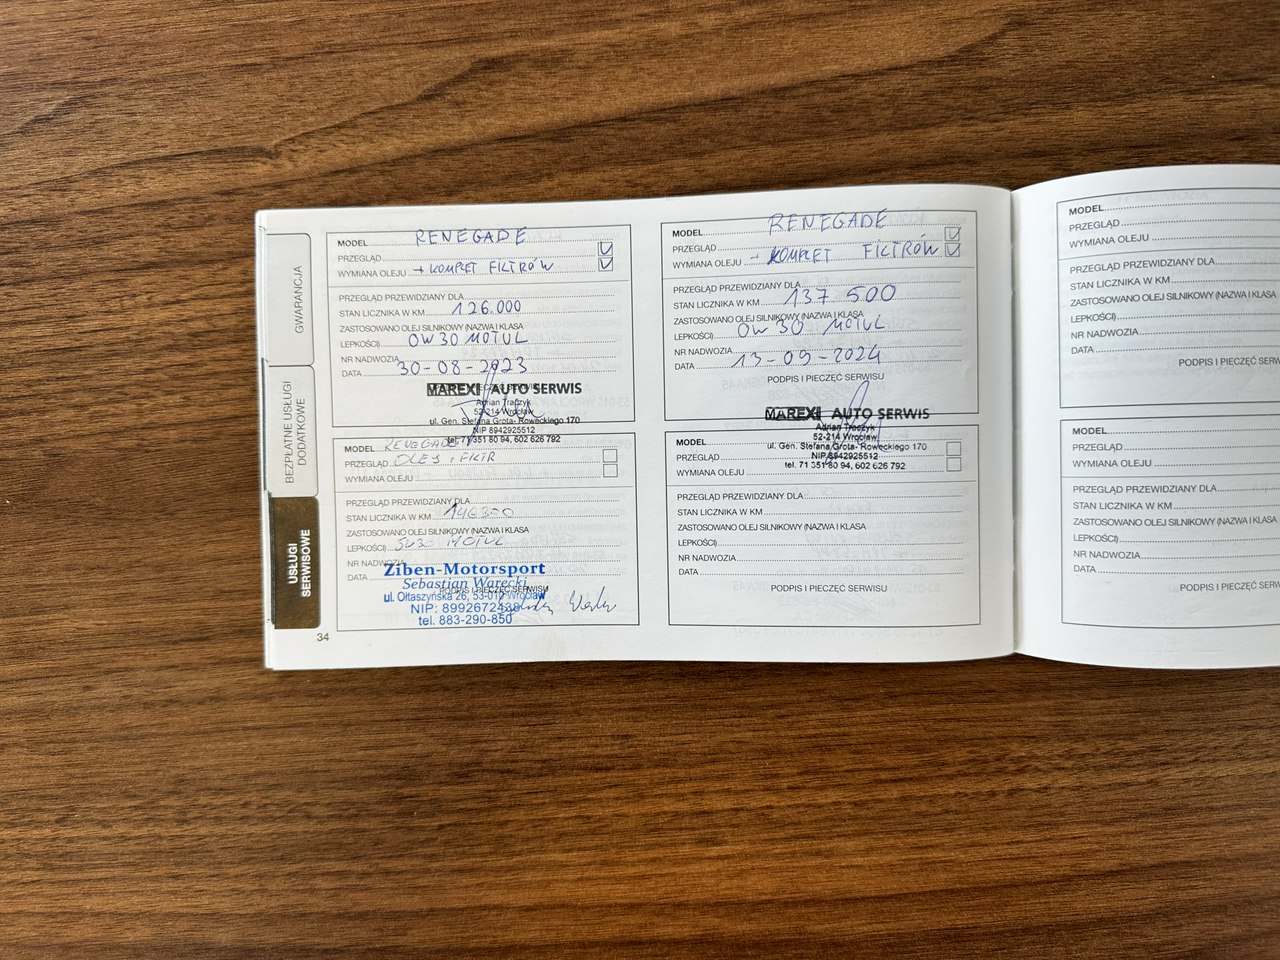 GWARANCJA
BEZPŁATNE USŁUGI
DODATKOWE
USŁUGI
SERWISOWE
MODEL RENEGADE
PRZEGLĄD
WYMIANA OLEJU + KOMPLET FILTRÓW
PRZEGLĄD PRZEWIDZIANY DLA
STAN LICZNIKA W KM 126.000
ZASTOSOWANO OLEJ SILNIKOWY (NAZWA I KLASA
LEPKOŚCI) 0W30 MOTUL
NR NADWOZIA
DATA 30-08-2023
MAREXI AUTO SERWIS
Adrian Traczyk
52-214 Wrocław
ul. Gen. Stefana Grota- Roweckiego 170
NIP 8942925512
tel. 71 351 80 94, 602 626 792
MODEL RENEGADE
PRZEGLĄD
WYMIANA OLEJU - KOMPLET FILTRÓW
PRZEGLĄD PRZEWIDZIANY DLA
STAN LICZNIKA W KM 137 500
ZASTOSOWANO OLEJ SILNIKOWY (NAZWA I KLASA
LEPKOŚCI) 0W30 MOTUL
NR NADWOZIA
DATA 13-09-2024
PODPIS I PIECZĘĆ SERWISU
MAREXI AUTO SERWIS
Adrian Traczyk
52-214 Wrocław
ul. Gen. Stefana Grota- Roweckiego 170
NIP 8942925512
tel. 71 351 80 94, 602 626 792
MODEL RENEGADE
PRZEGLĄD OLEJ i FILTR
WYMIANA OLEJU
PRZEGLĄD PRZEWIDZIANY DLA
STAN LICZNIKA W KM
ZASTOSOWANO OLEJ SILNIKOWY (NAZWA I KLASA
LEPKOŚCI) 5W30 MOTUL
NR NADWOZIA
DATA
PODPIS I PIECZĘĆ SERWISU
Ziben-Motorsport
Sebastian Warecki
ul. Ołtaszyńska 26, 53-010 Wrocław
NIP: 8992672438
tel. 883-290-850
MODEL
PRZEGLĄD
WYMIANA OLEJU
PRZEGLĄD PRZEWIDZIANY DLA
STAN LICZNIKA W KM
ZASTOSOWANO OLEJ SILNIKOWY (NAZWA I KLASA
LEPKOŚCI)
NR NADWOZIA
DATA
PODPIS I PIECZĘĆ SERWISU
34
MODEL
PRZEGLĄD
WYMIANA OLEJU
PRZEGLĄD PRZEWIDZIANY DLA
STAN LICZNIKA W KM
ZASTOSOWANO OLEJ SILNIKOWY (NAZWA I KLASA
LEPKOŚCI)
NR NADWOZIA
DATA
PODPIS I PIECZĘĆ SERW
MODEL
PRZEGLĄD
WYMIANA OLEJU
PRZEGLĄD PRZEWIDZIANY DLA
STAN LICZNIKA W KM
ZASTOSOWANO OLEJ SILNIKOWY (NAZWA I KLASA
LEPKOŚCI)
NR NADWOZIA
DATA
PODPIS I PIECZĘĆ SERW